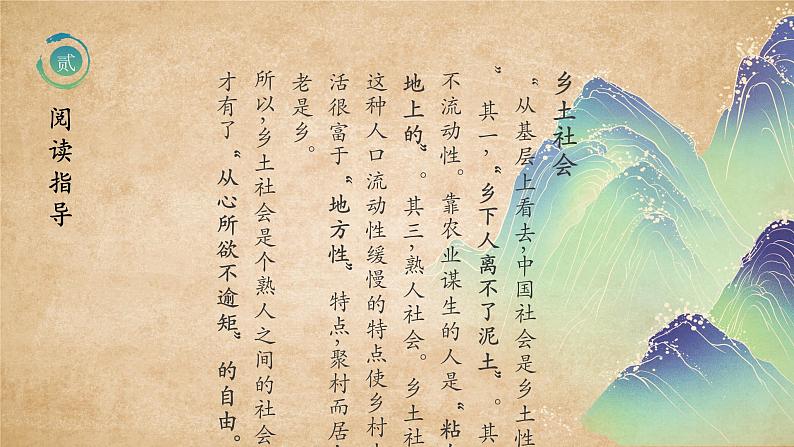 贰
阅读指导
乡土社会
“从基层上看去，中国社会是乡土性
”其一，“乡下人离不了泥土”。其
不流动性。靠农业谋生的人是“粘
地上的”。其三，熟人社会。乡土社
这种人口流动性缓慢的特点使乡村
活很富于“地方性”特点，聚村而居
老是乡。
所以，乡土社会是个熟人之间的社会
才有了“从心所欲不逾矩”的自由。